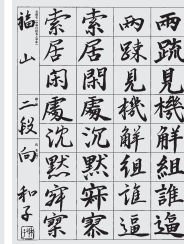 兩踈見機解組誰逼
兩踈見機解組誰逼
索居閑處沉默寂寥
索居閑處沈默寂寥
福山 二段 向 和子